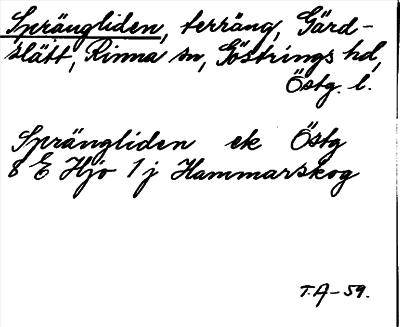 Sprängliden, terräng, Gärd-
slätt, Rinna sn, Göstrings hd,
Östg. l.
Sprängliden ek Östg
8 E Hjo 1 j Hammarskog
T.A-59.